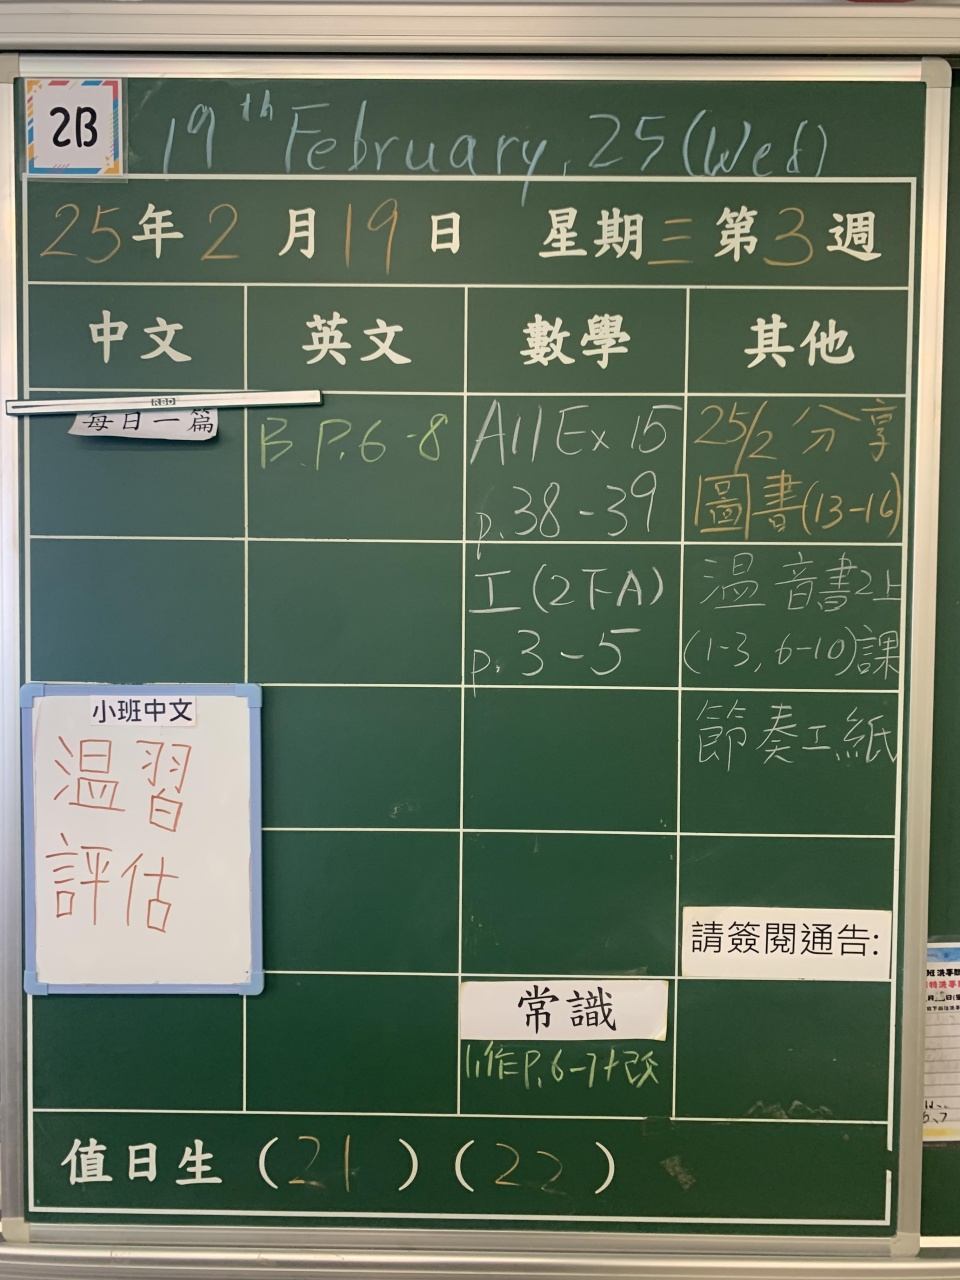 2B
19th February, 25 (Wed)
25年2月19日 星期三第3週
中文
英文
數學
其他
KBD
每日一篇
B.P.6-8
All Ex 15
p.38-39
25/2 分享
圖書(13-16)
工(2下A)
p.3-5
温音書2上
(1-3, 6-10)課
小班中文
温習
評估
節奏工紙
請簽閱通告:
常識
作P.6-7+改
值日生 (21) (22)